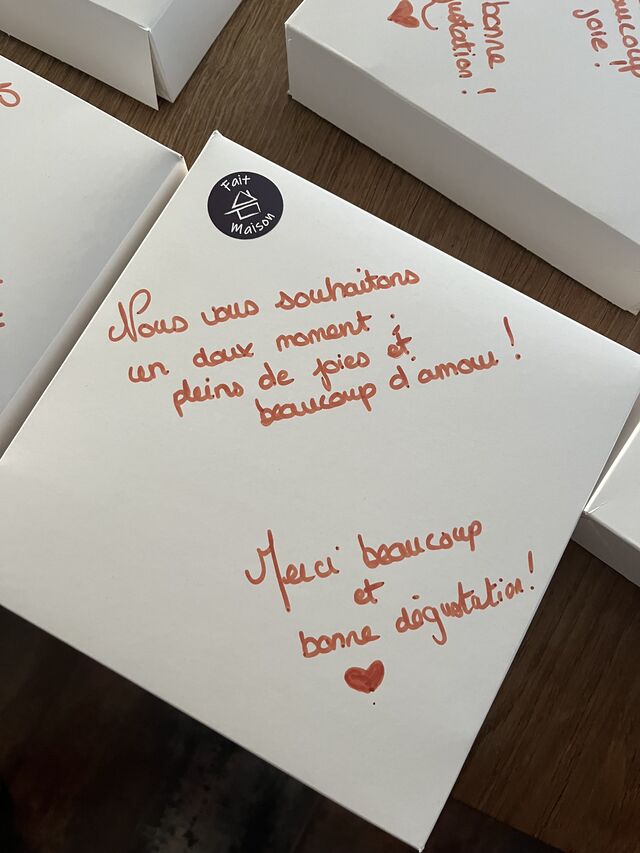 bonne
dégustation !
beaucoup
joie !
Fait
Maison
Nous vous souhaitons
un doux moment :
pleins de joies et
beaucoup d'amour !
Merci beaucoup
et
bonne dégustation !